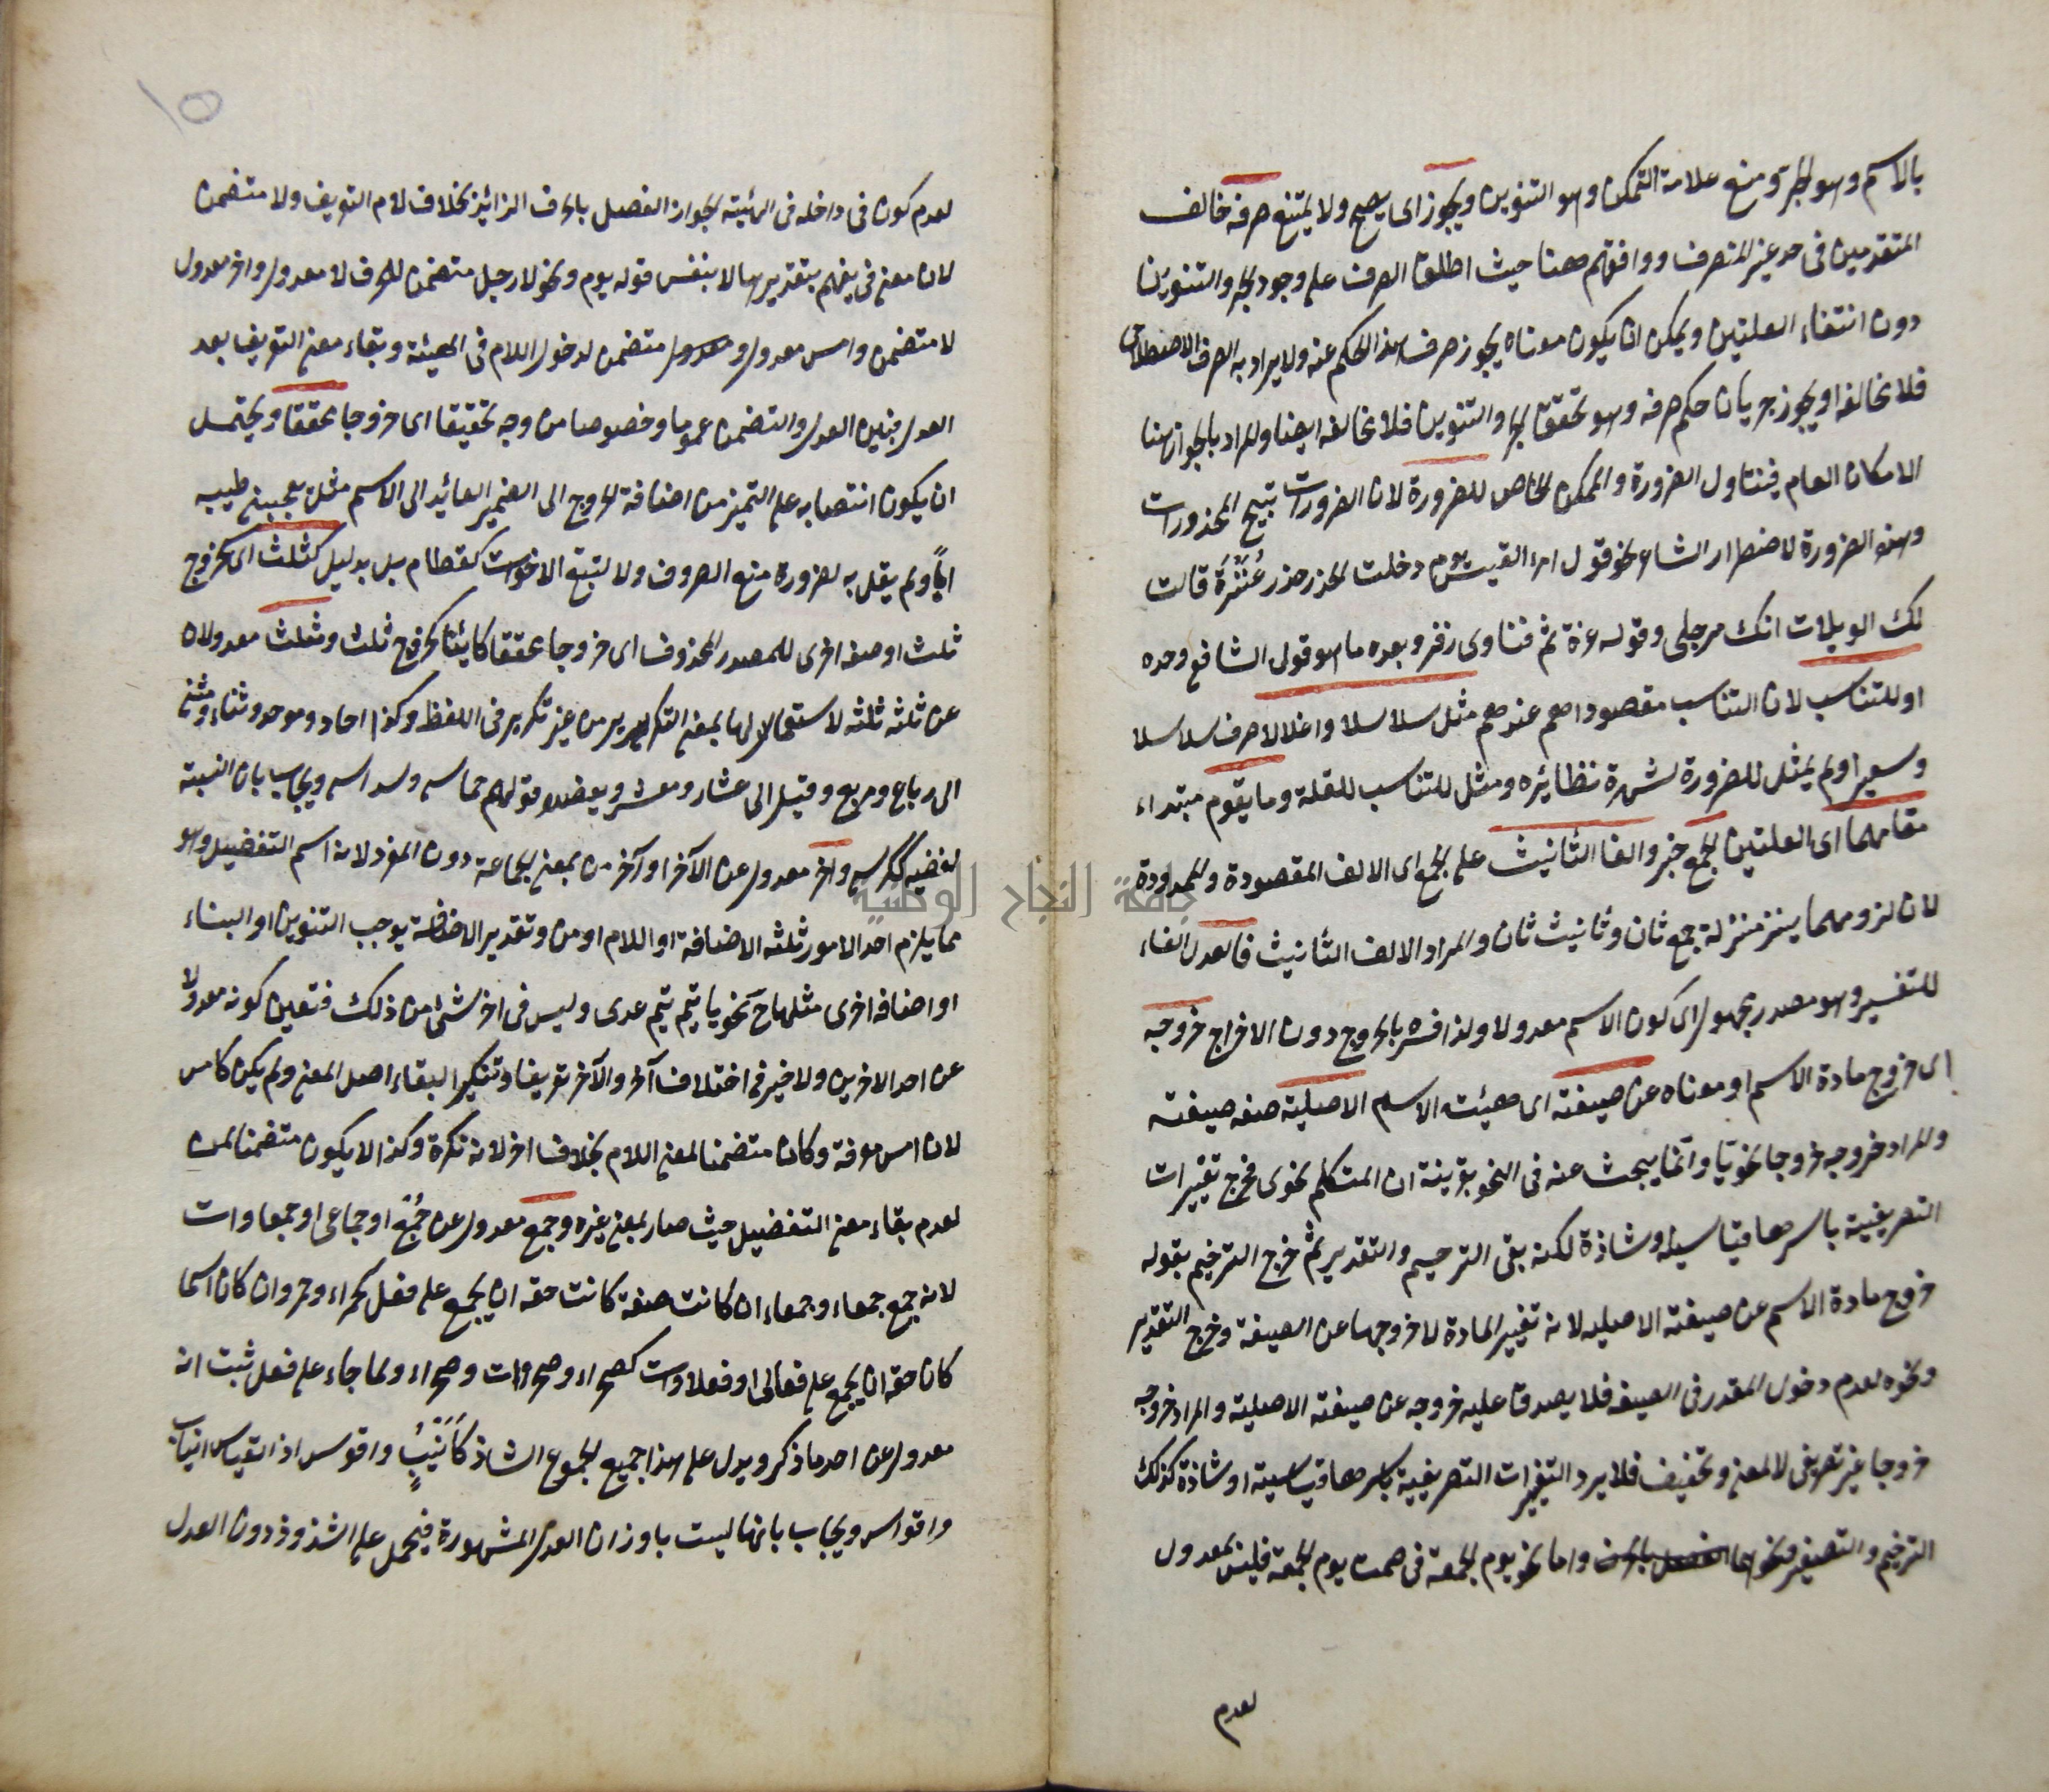 بالاسم وهو الجر ومنع علامة التمكن وهو التنوين ويجوز اى يصح ولا يمتنع صرفه خالف
المتقدمين فى حد غير المنصرف ووافقهم ههنا حيث اطلق الصرف على وجود الجر والتنوين
دون انتفاء العلتين ويمكن ان يكون معناه يجوز صرف هذا الحكم عنه ولا يراد به الصرف الاصطلاحى
فلا يخالفه او يجوز جريان حكم صرفه وهو تحقق الجر والتنوين فلا يخالفه ايضا والمراد بالجواز هنا
الامكان العام فيتناول الضرورة والممكن الخاص للضرورة لان الضرورات تبيح المحذورات
وهذه الضرورة لاضطرار الشاعر نحو قول امرء القيس يوم دخلت الخدر خدر عُنَيْزَةَ قالت
لك الويلات انك مرجلى وقوله عزة ثم فتاوى زفر وبعده ما هو قول الشافع وحده
او للتناسب لان التناسب مقصود اهم عندهم مثل سلاسلا واغلالا صرف سلاسلا
وسعيرا ولم يمثل للضرورة لشهرة نظائره ومثل للتناسب للقلة وما يقوم مبتداء
مقامهما اى العلتين الجمع خبر والفا التأنيث على الجمع اى الالف المقصورة والممدودة
لان لزومهما ينزل منزلة جمع ثان وتأنيث ثان والمراد الالف التأنيث فالعدل الفاء
للتفسير وهو مصدر مجهول اى كون الاسم معدولا ولذا فسره بالخروج دون الاخراج خروجه
اى خروج مادة الاسم او معناه عن صيغته اى هيئت الاسم الاصلية صفة صيغته
والمراد خروجه خروجا نحويا وانما يبحث عنه فى النحو بقرينة ان المتكلم نحوى فخرج تغييرات
التصريفية باسرها قياسية وشاذة لكنه بقى الترخيم والتقدير ثم خرج الترخيم بقوله
خروج مادة الاسم عن صيغته الاصلية لانه تغيير المادة لا خروجها عن الصيغة وخرج التقدير
ونحوه لعدم دخول المقدر فى الصيغة فلا يصدق عليه خروجه عن صيغته الاصلية والمراد خروجه
خروجا غير تصريفى لا لمعنى وتخفيف فلا يرد التغيرات التصريفية باسرها قياسية او شاذة كذلك
الترخيم والتصغير ونحوهما الفصل بالحرف واما نحو يوم الجمعة فى صمت يوم الجمعة فليس بمعدول
لعدم
١٥
لعدم كون فى داخله فى الهيئته لجواز الفصل بالحرف الزائد بخلاف لام التعريف ولا متضمن
لان معنى فى يفهم بتقديرها لا بنفس قوله يوم ونحو لا رجل متضمن للحرف لا معدول واخر معدول
لا متضمن وامس معدول ومعدول متضمن لدخول اللام فى الهيئة وبقاء معنى التعريف بعد
العدل فبين العدل والتضمن عموما وخصوصا من وجه تحقيقا اى خروجا محققا ويحتمل
ان يكون انتصابه على التميز من اضافة الخروج الى الضمير العائد الى الاسم مثل يعجبنى طيبه
اباً ولم يقل به لضرورة منع الصرف ولا لتبع الاخوات كقطام بل بدليل كثلث اى كخروج
ثلث او صفة اخرى للمصدر المحذوف اى خروجا محققا كائنا كخروج ثلث ومثلث معدولان
عن ثلثه ثلثه لاستعمالهما بمعنى التكرير من غير تكرير فى اللفظ وكذا احاد وموحد وثناء ومثنى
الى رباع ومربع وقيل الى عشار ومعشر وبعضهم قولهم خماس وسداس ويجاب بان النسبة
لفظية ككرسى واخر معدول عن الآخر او آخر من بمعنى الجماعة دون المفرد لانه اسم التفضيل وهو
مما يلزم احد الامور ثلثه الاضافة او اللام او من وتقدير الاضافة يوجب التنوين او البناء
او اضافة اخرى مثلها ح نحو يا تيم تيم عدى وليس فى اخر شئ من ذلك فتعين كونه معدولا
عن احد الاخرين ولا ضير فى اختلاف آخر والآخر تعريفا وتنكيرا لبقاء اصل المعنى ولم يكن كامس
لان امس معرفة وكان متضمنا لمعنى اللام بخلاف اخر لانه نكرة وكذا لا يكون متضمنا لمن
لعدم بقاء معنى التفضيل حيث صار بمعنى غيره وجمع معدول عن جُمْعٍ او جماعى او جمعاوات
لانه جمع جمعاء وجمعاء ان كانت صفة كانت حقه ان يجمع على فعل كحمراء وحمر وان كان اسما
كان حقه ان يجمع على فعالى او فعلاوات كصحراء وصحراوات وصحراء ولما جاء على فعل ثبت انه
معدول عن احد ما ذكر ويدل على هذا جميع الجموع الشاذ كَاَنْيُبٍ واقوس اذ القياس انياب
واقواس ويجاب بانها ليست باوزان العدل المشهورة فيحمل على الشذوذ دون العدل
جامعة النجاح الوطنية